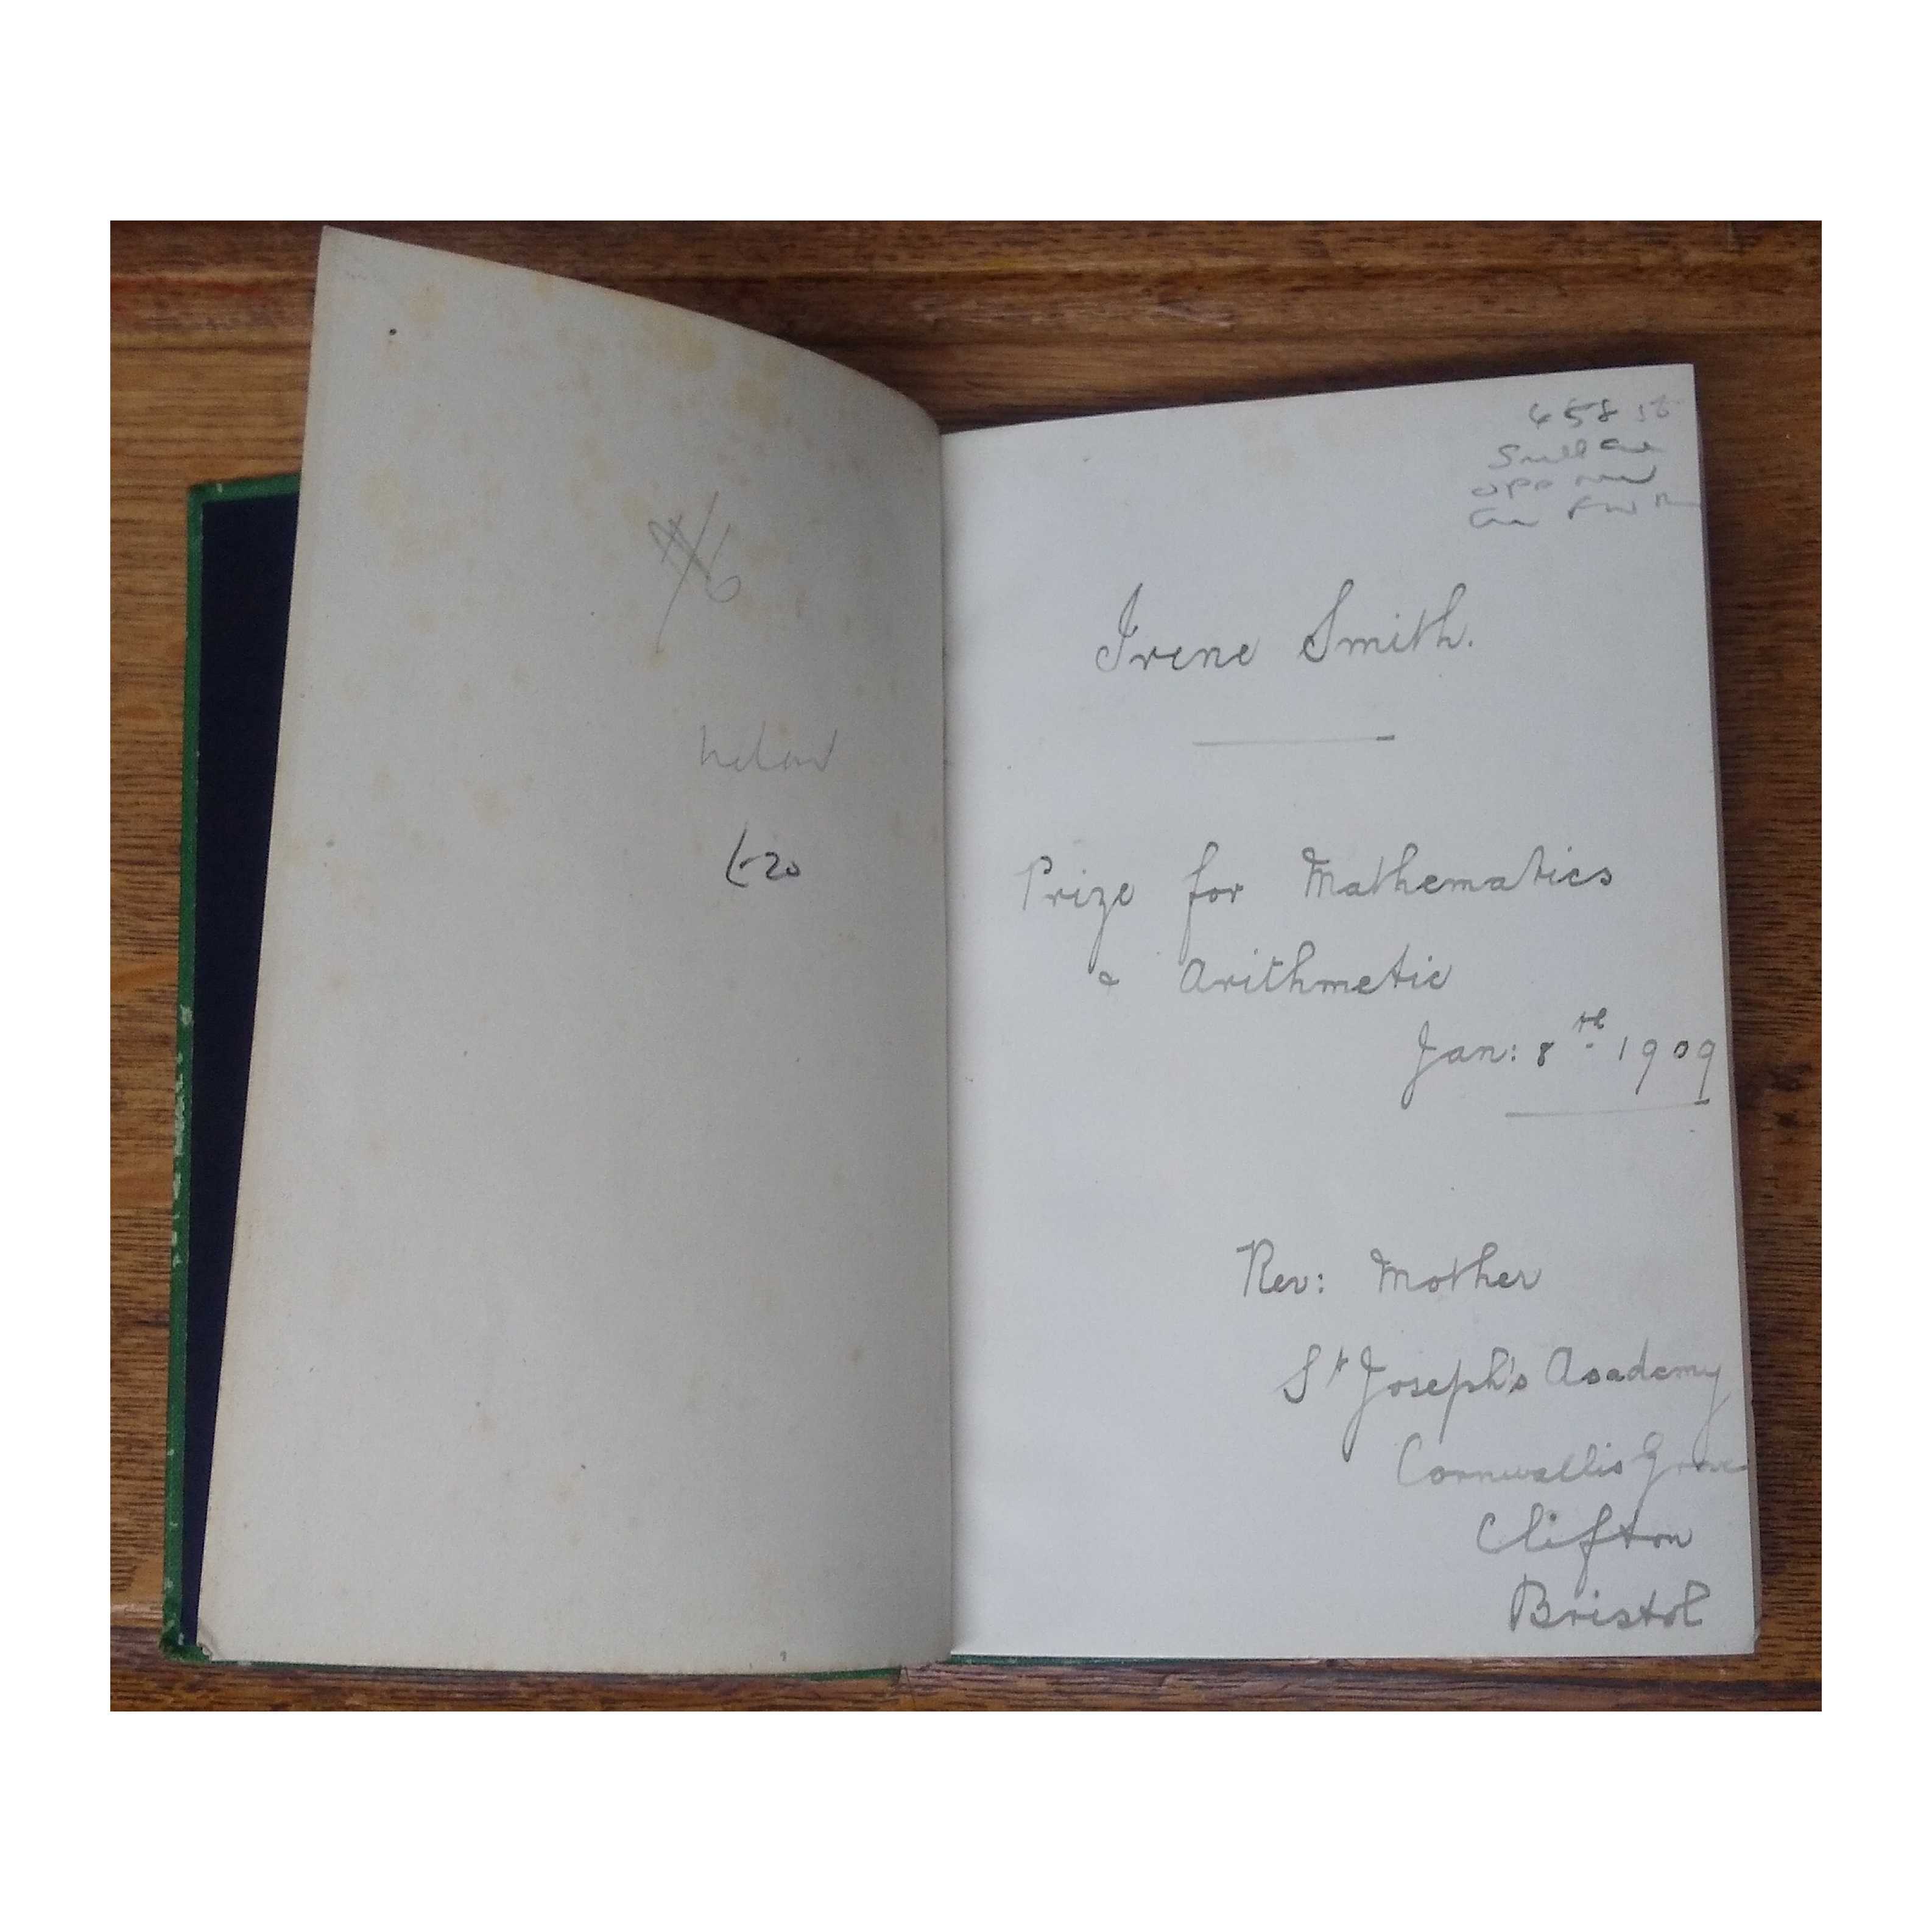 £20
Irene Smith.
Prize for Mathematics
& Arithmetic
Jan: 8th 1909
Rev: Mother
St Joseph's Academy
Cornwallis Grove
Clifton
Bristol